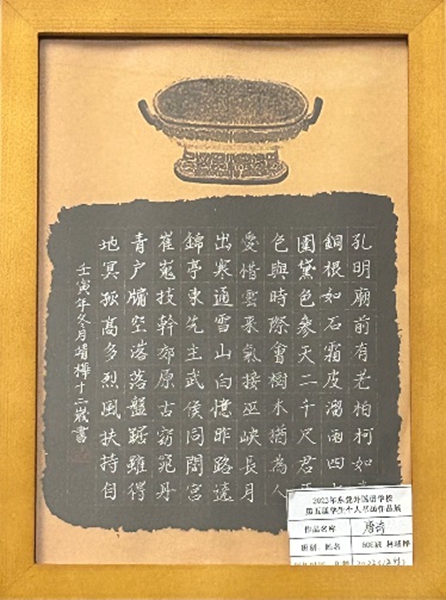 孔明廟前有老柏柯如
銅根如石霜皮溜雨四
圍黛色參天二千尺君
色與時際會樹木猶為人
愛惜雲來氣接巫峽長月
出寒通雪山白憶昨路遶
錦亭東先主武侯同閟宮
崔嵬枝幹郊原古窈窕丹
青戶牖空落落盤踞雖得
地冥孤高多烈風扶持自
壬寅年冬月靖樺十二歲書
2022年东莞外国语学校
第五届学生个人书画作品展
作品名称 唐诗
班别、姓名 606班 林靖桦